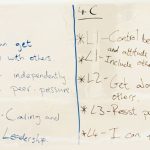 +C
can get
with others
independently
peer pressure
Caring and
Leadership
*L1- Control be
and attitude
*L1- Include othe
*L2- Get abo
others.
*L3- Resist p
*L4- I can